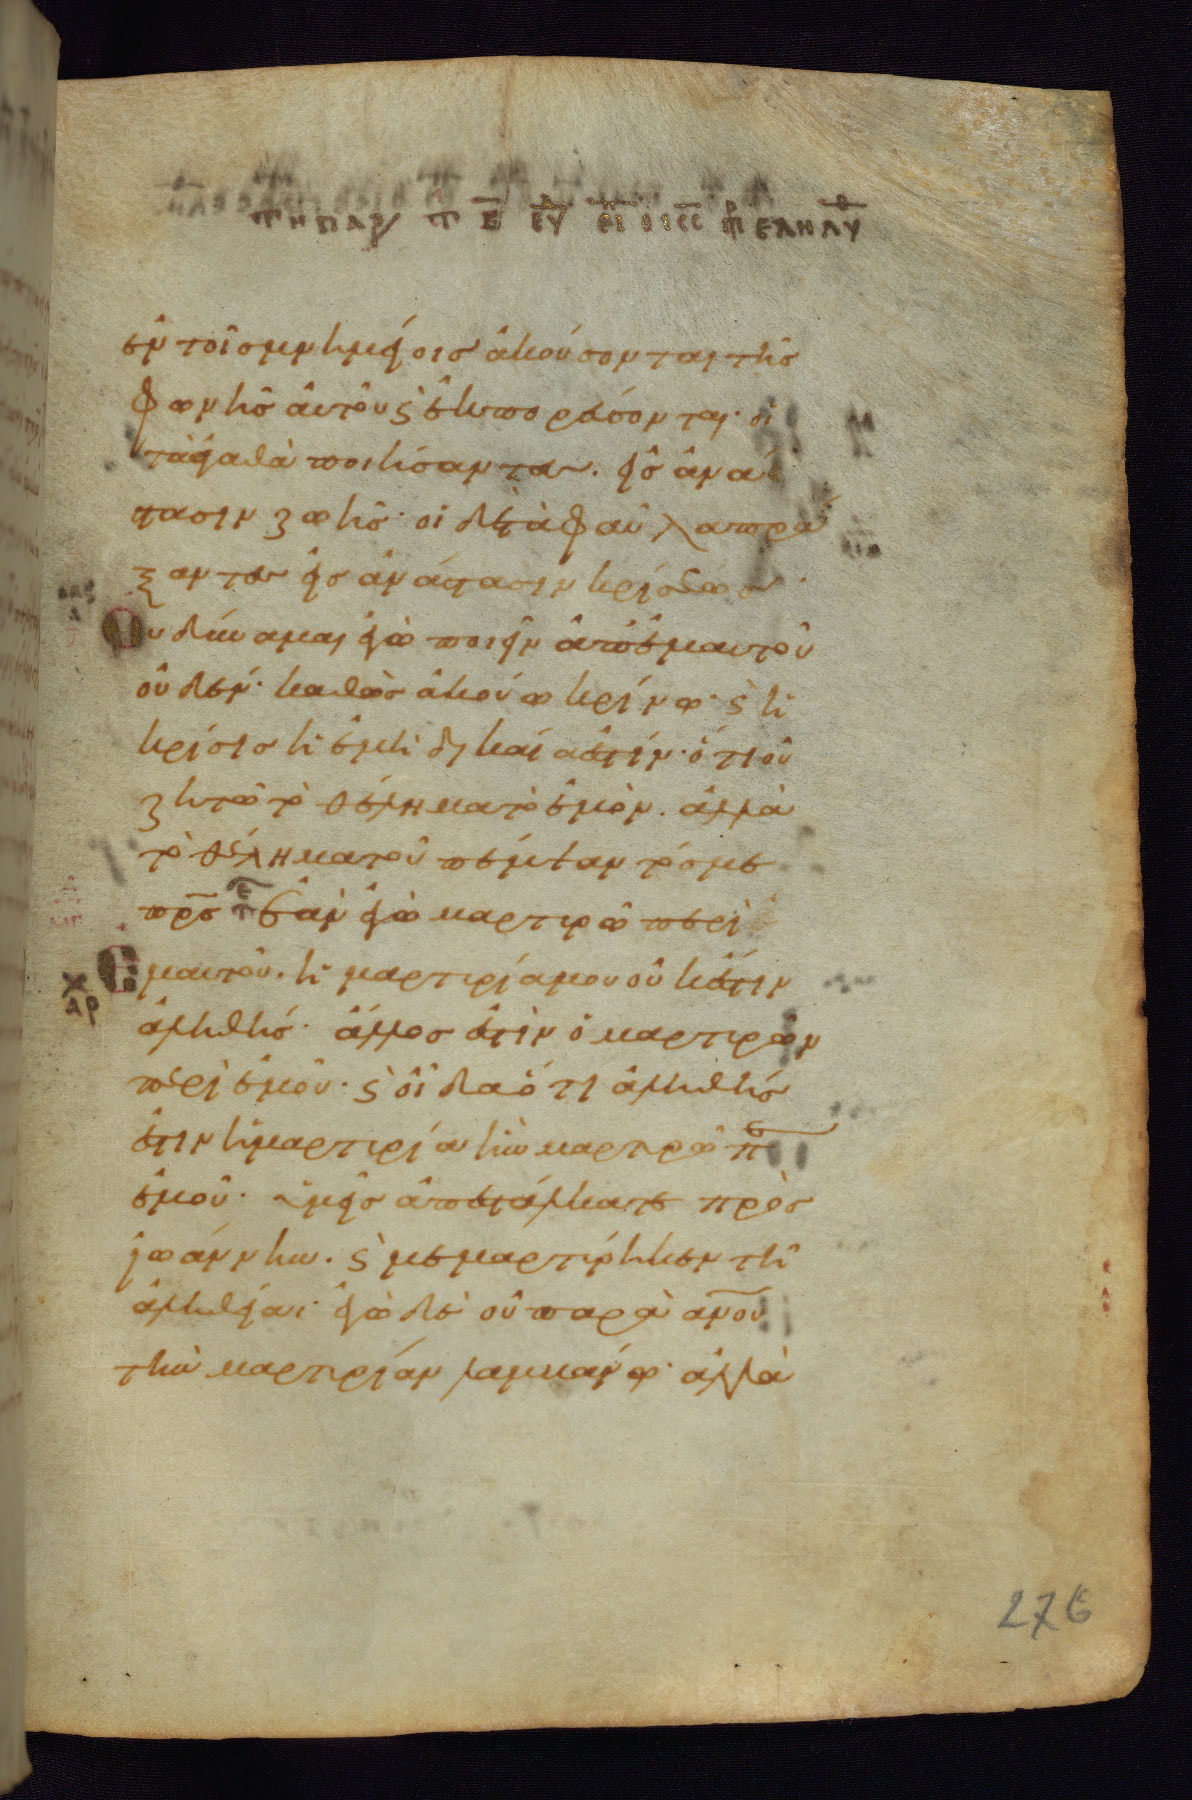 ἐν τοῖσ μνημείοισ ἀκούσονται τῆσ
φωνῆσ αὐτοῦ ϛ ἐκπορεύσονται· οἱ
τὰ ἀγαθὰ ποιήσαντεσ. εἰσ ἀνά
στασιν ζωῆσ· οἱ δὲ τὰ φαῦλα πρά
ξαντεσ εἰσ ἀνάστασιν κρίσεωσ·
Οὐ δύναμαι ἐγὼ ποιεῖν ἀπ᾽ ἐμαυτοῦ
οὐδέν· καθὼσ ἀκούω κρίνω· ϛ ἡ
κρίσισ ἡ ἐμὴ δικαία ἐστίν· ὅτι οὐ
ζητῶ τὸ θέλημα τὸ ἐμὸν. ἀλλὰ
τὸ θέλημα τοῦ πέμψαντόσ με
πρ̅σ τε ἐὰν ἐγὼ μαρτυρῶ περὶ
Ἐμαυτοῦ. ἡ μαρτυρία μου οὐκ ἔστιν
ἀληθήσ· ἄλλοσ ἐστὶν ὁ μαρτυρῶν
περὶ ἐμοῦ· ϛ οἶδα ὅτι ἀληθήσ
ἐστιν ἡ μαρτυρία ἣν μαρτυρῶ π
ἐμοῦ· ὑμεῖσ ἀπεστάλκατε πρὸσ
ἰωάννην. ϛ μεμαρτύρηκεν τῆ
ἀληθείαι· ἐγὼ δὲ οὐ παρὰ αν̅ου
τὴν μαρτυρίαν λαμβάνω· ἀλλὰ
276